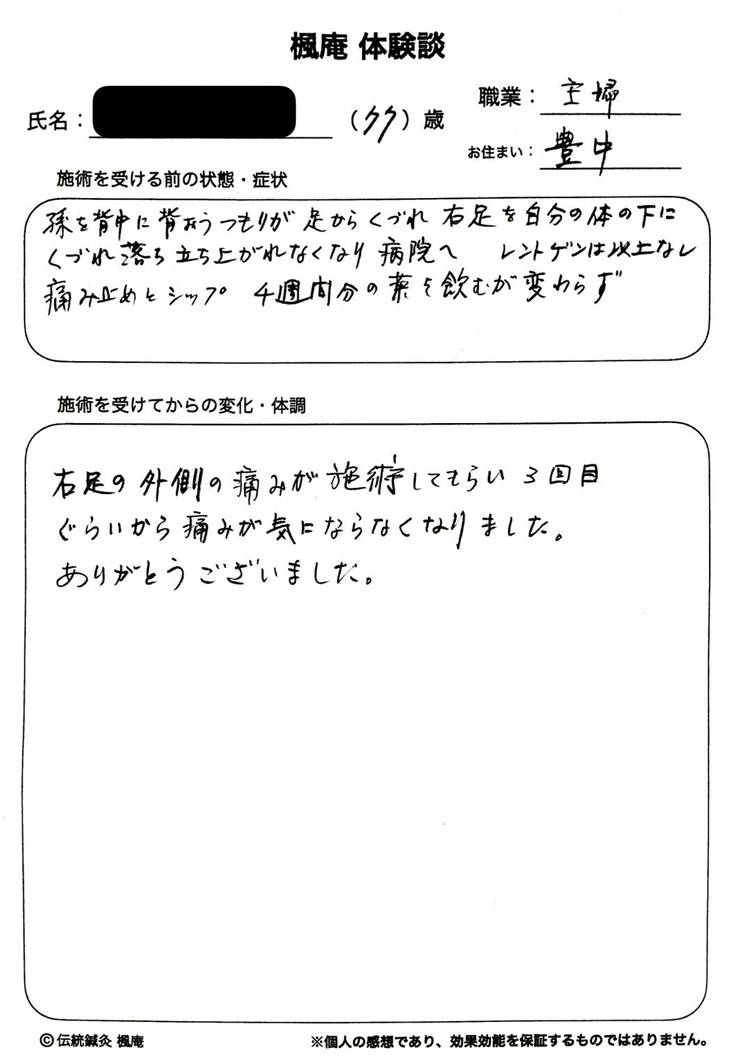 楓庵 体験談
氏名：
（77）歳
職業： 主婦
お住まい： 豊中
施術を受ける前の状態・症状
孫を背中に背おうつもりが 足からくづれ 右足を自分の体の下に
くづれ落ち 立ち上がれなくなり 病院へ レントゲンは以上なし
痛み止めとシップ 4週間分の薬を飲むが変わらず
施術を受けてからの変化・体調
右足の外側の痛みが施術してもらい 3回目
ぐらいから痛みが気にならなくなりました。
ありがとうございました。
©伝統鍼灸 楓庵
※個人の感想であり、効果効能を保証するものではありません。